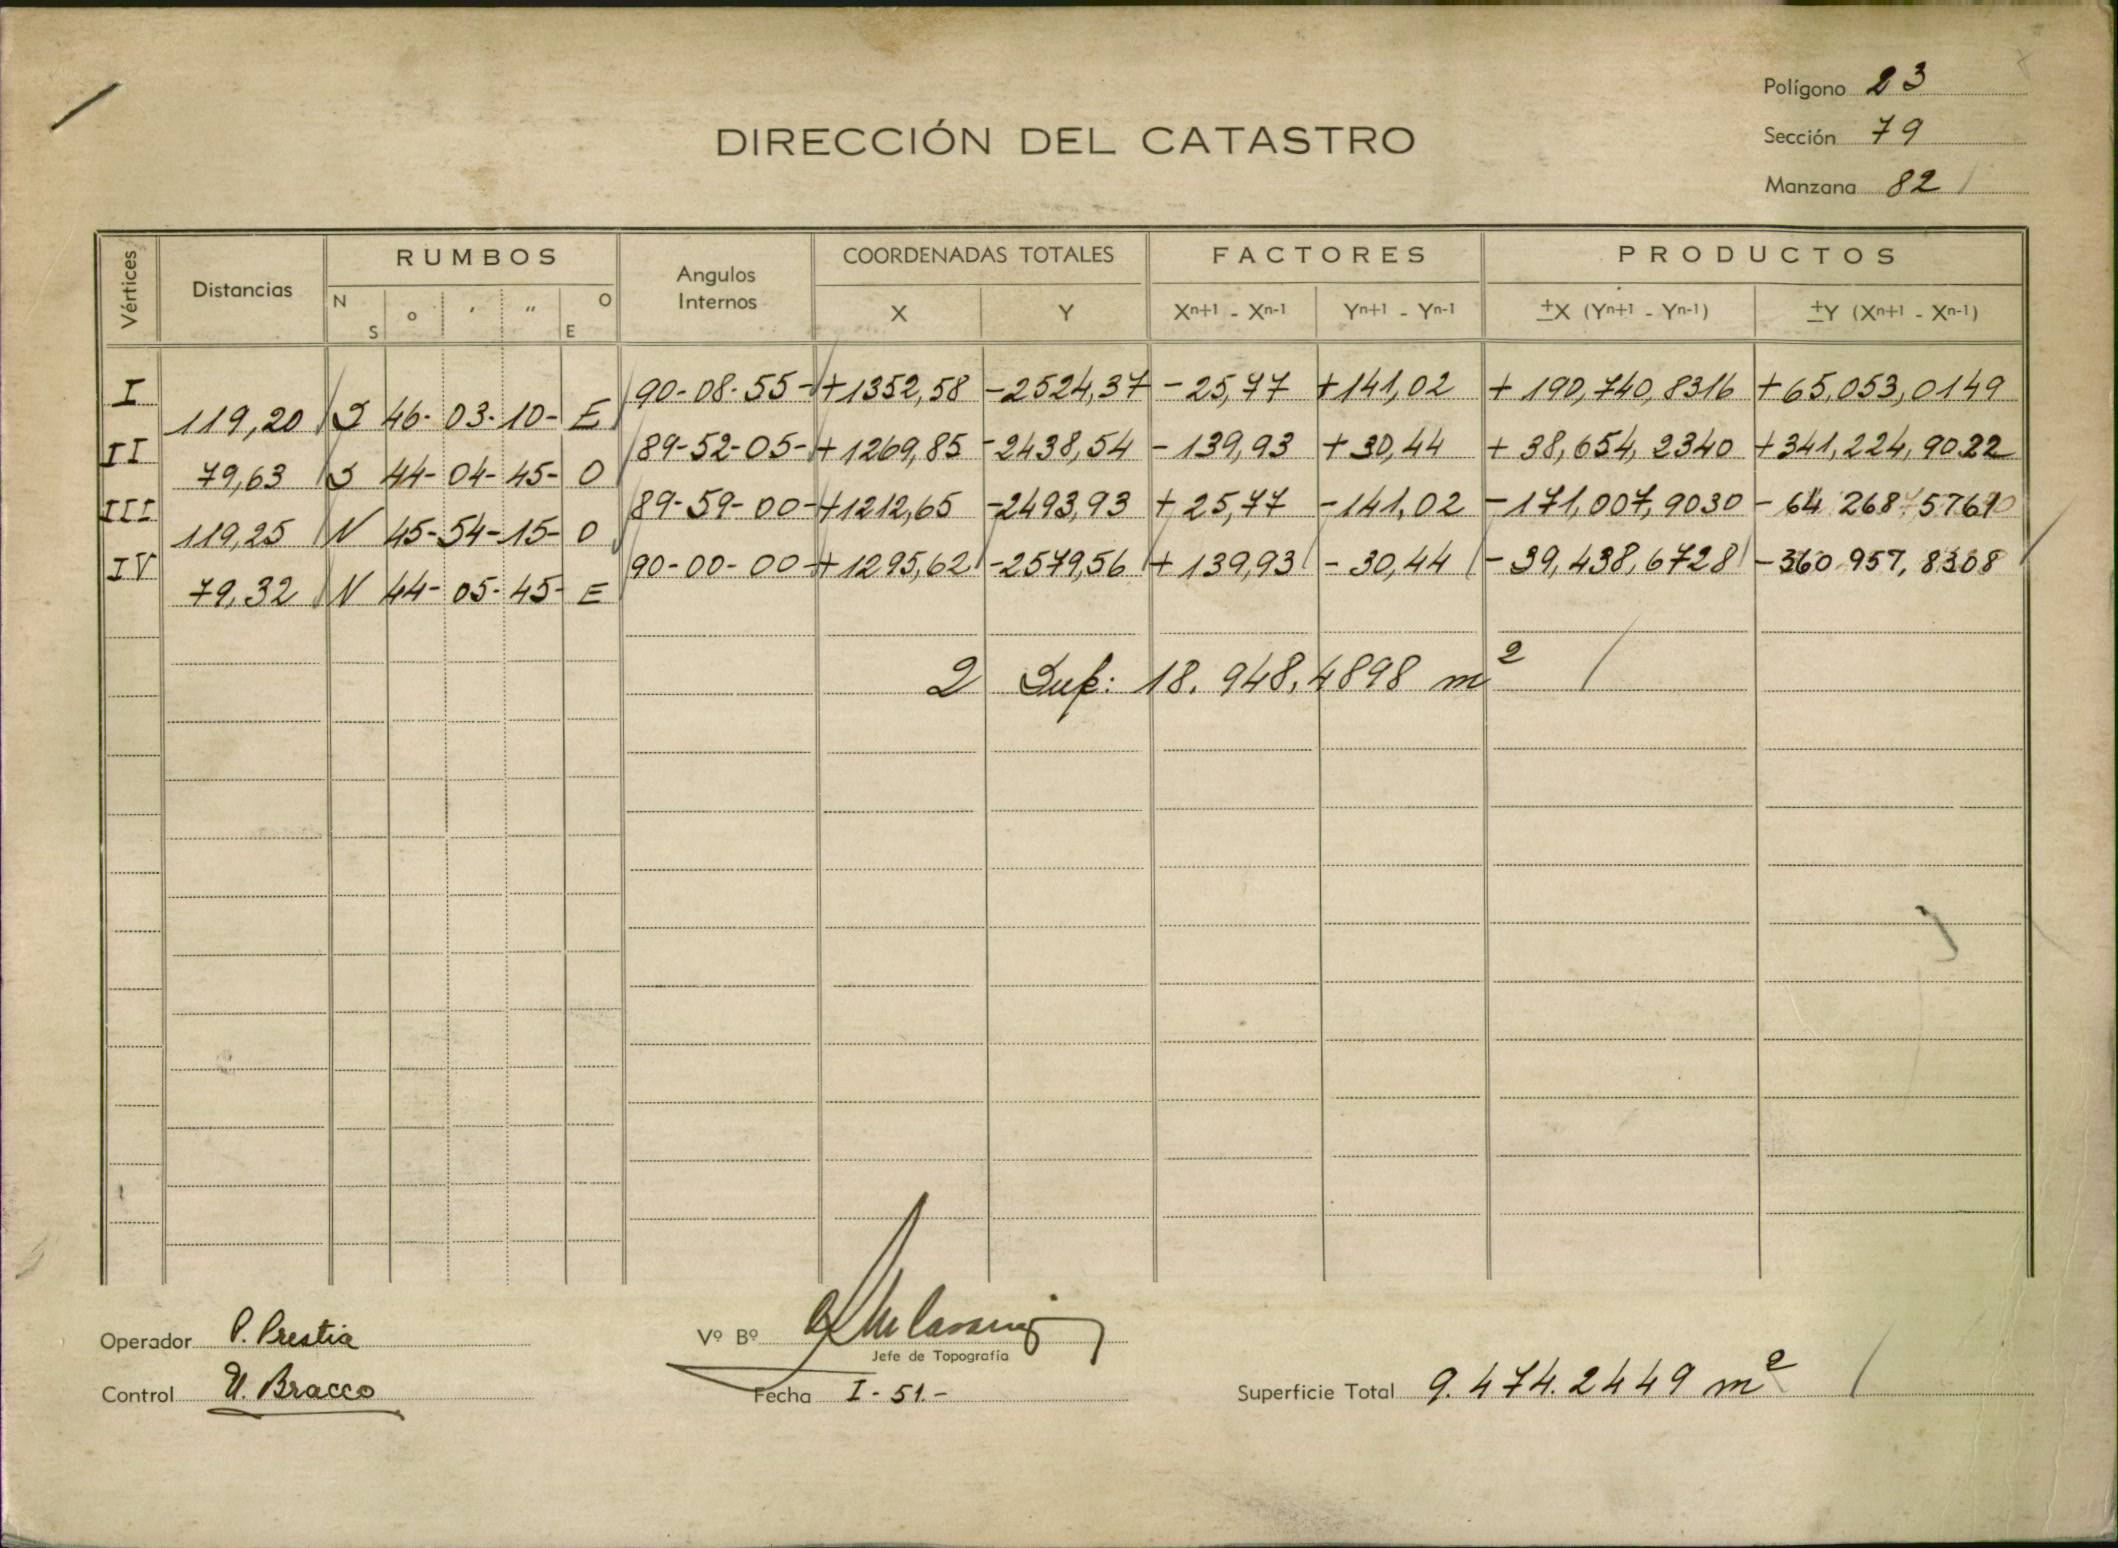 Polígono 23
DIRECCIÓN DEL CATASTRO
Sección 79
Manzana 82
Vértices Distancias RUMBOS Angulos Internos COORDENADAS TOTALES FACTORES PRODUCTOS
N S o ′ ″ O E X Y Xn+1 - Xn-1 Yn+1 - Yn-1 ±X (Yn+1 - Yn-1) ±Y (Xn+1 - Xn-1)
I 90-08-55- +1352,58 -2524,37 -25,77 +141,02 +190,740,8316 +65,053,0149
119,20 S 46- 03- 10- E
II 89-52-05- +1269,85 -2438,54 -139,93 +30,44 +38,654,2340 +341,224,9022
79,63 S 44- 04- 45- O
III 89-59-00- +1212,65 -2493,93 +25,77 -141,02 -171,007,9030 -64 268 5761
119,25 N 45- 54- 15- O
IV 90-00-00- +1295,62 -2579,56 +139,93 -30,44 -39,438,6728 -360 957,8308
79,32 N 44- 05- 45- E
2 Sup: 18.948,4898 m²
Operador P. Prestia
Vº Bº
Jefe de Topografía
Control U. Bracco
Fecha I-51.-
Superficie Total 9.474.2449 m²